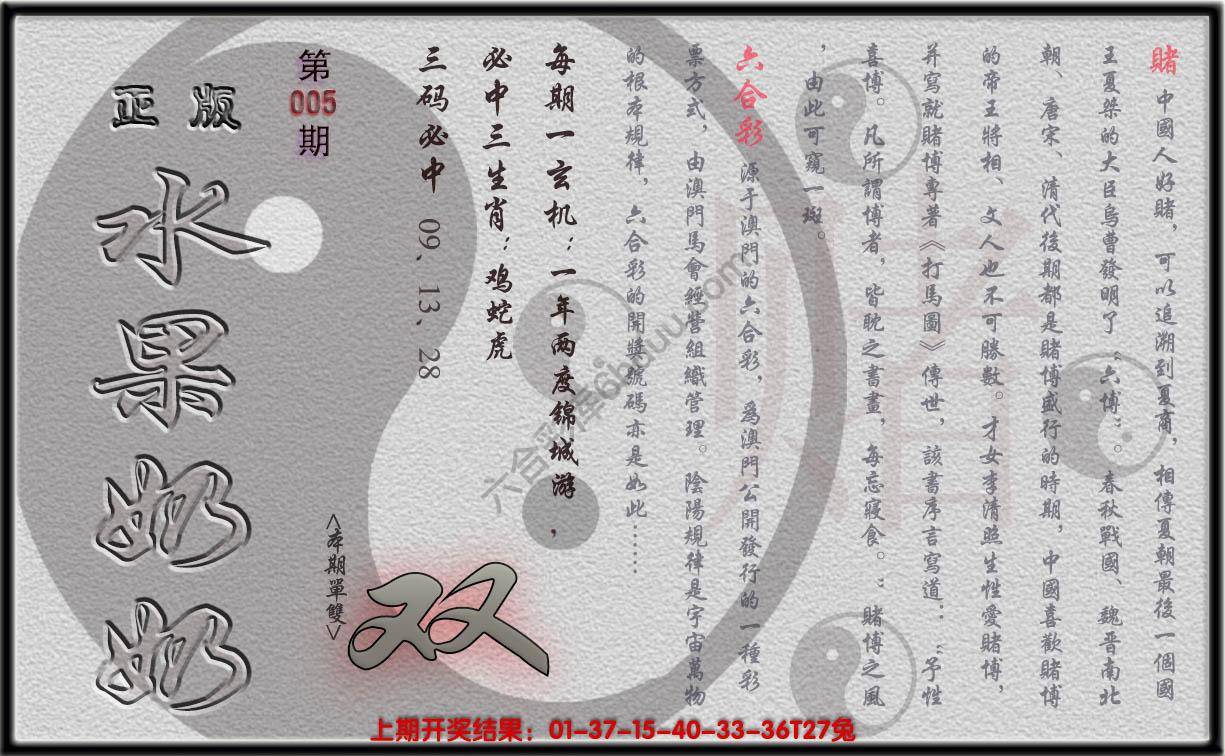 賭 中國人好賭，可以追溯到夏商，相傳夏朝最後一個國
王夏桀的大臣烏曹發明了“六博”。春秋戰國、魏晋南北
朝、唐宋、清代後期都是賭博盛行的時期，中國喜歡賭博
的帝王將相、文人也不可勝數。才女李清照生性愛賭博，
并寫就賭博專著《打馬圖》傳世，該書序言寫道：“予性
喜博。凡所謂博者，皆耽之書畫，每忘寢食。”賭博之風
，由此可窺一斑。
六合彩 源于澳門的六合彩，爲澳門公開發行的一種彩
票方式，由澳門馬會經營組織管理。陰陽規律是宇宙萬物
的根本規律，六合彩的開獎號碼亦是如此……
每期一玄机：一年两度錦城游，
必中三生肖：鸡蛇虎
三码必中 09、13、28
第
005
期
<本期單雙>
双
正版
水果奶奶
上期开奖结果：01-37-15-40-33-36T27兔